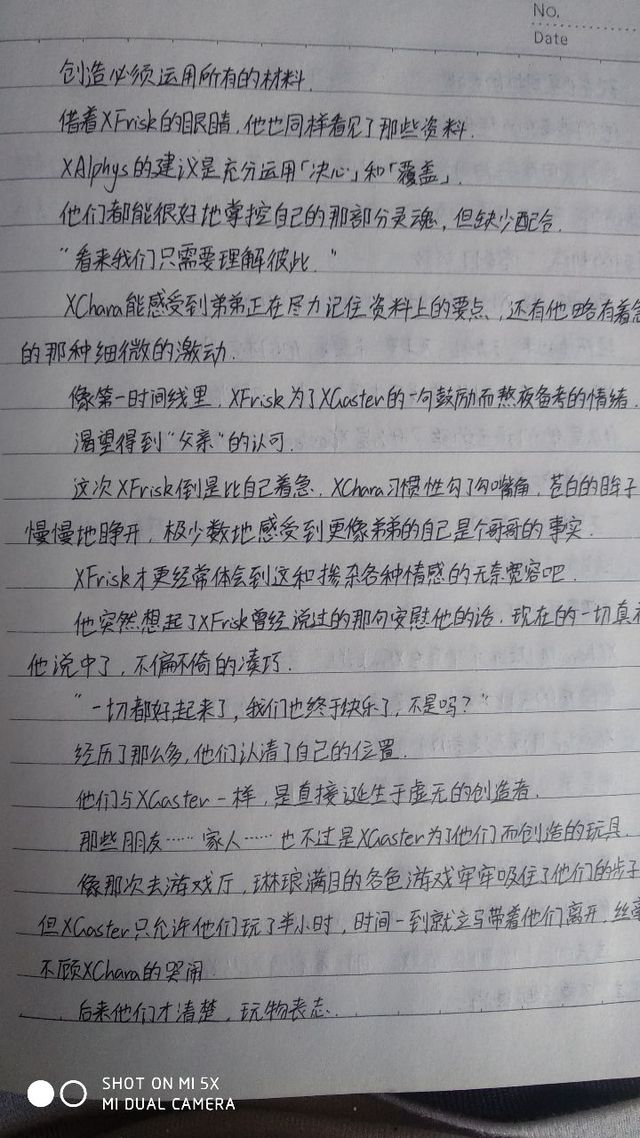 No.
Date
创造必须运用所有的材料.
借着XFrisk的眼睛,他也同样看见了那些资料.
XAlphys的建议是充分运用「决心」和「覆盖」.
他们都能很好地掌控自己的那部分灵魂,但缺少配合.
"看来我们只需要理解彼此."
XChara能感受到弟弟正在尽力记住资料上的要点,还有他略有着急
的那种细微的激动.
像第一时间线里,XFrisk为了XGaster的一句鼓励而熬夜备考的情绪.
渴望得到"父亲"的认可.
这次XFrisk倒是比自己着急.XChara习惯性勾了勾嘴角,苍白的眸子
慢慢地睁开,极少数地感受到更像弟弟的自己是个哥哥的事实.
XFrisk才更经常体会到这种掺杂各种情感的无奈宽容吧.
他突然想起了XFrisk曾经说过的那句安慰他的话.现在的一切真
他说中了,不偏不倚的凑巧.
"一切都好起来了,我们也终于快乐了,不是吗?"
经历了那么多,他们认清了自己的位置.
他们与XGaster一样,是直接诞生于虚无的创造者.
那些朋友……家人……也不过是XGaster为了他们而创造的玩具.
像那次去游戏厅,琳琅满目的各色游戏牢牢吸住了他们的步子
但XGaster只允许他们玩了半小时,时间一到就立马带着他们离开,丝毫
不顾XChara的哭闹
后来他们才清楚,玩物丧志.
SHOT ON MI 5X
MI DUAL CAMERA